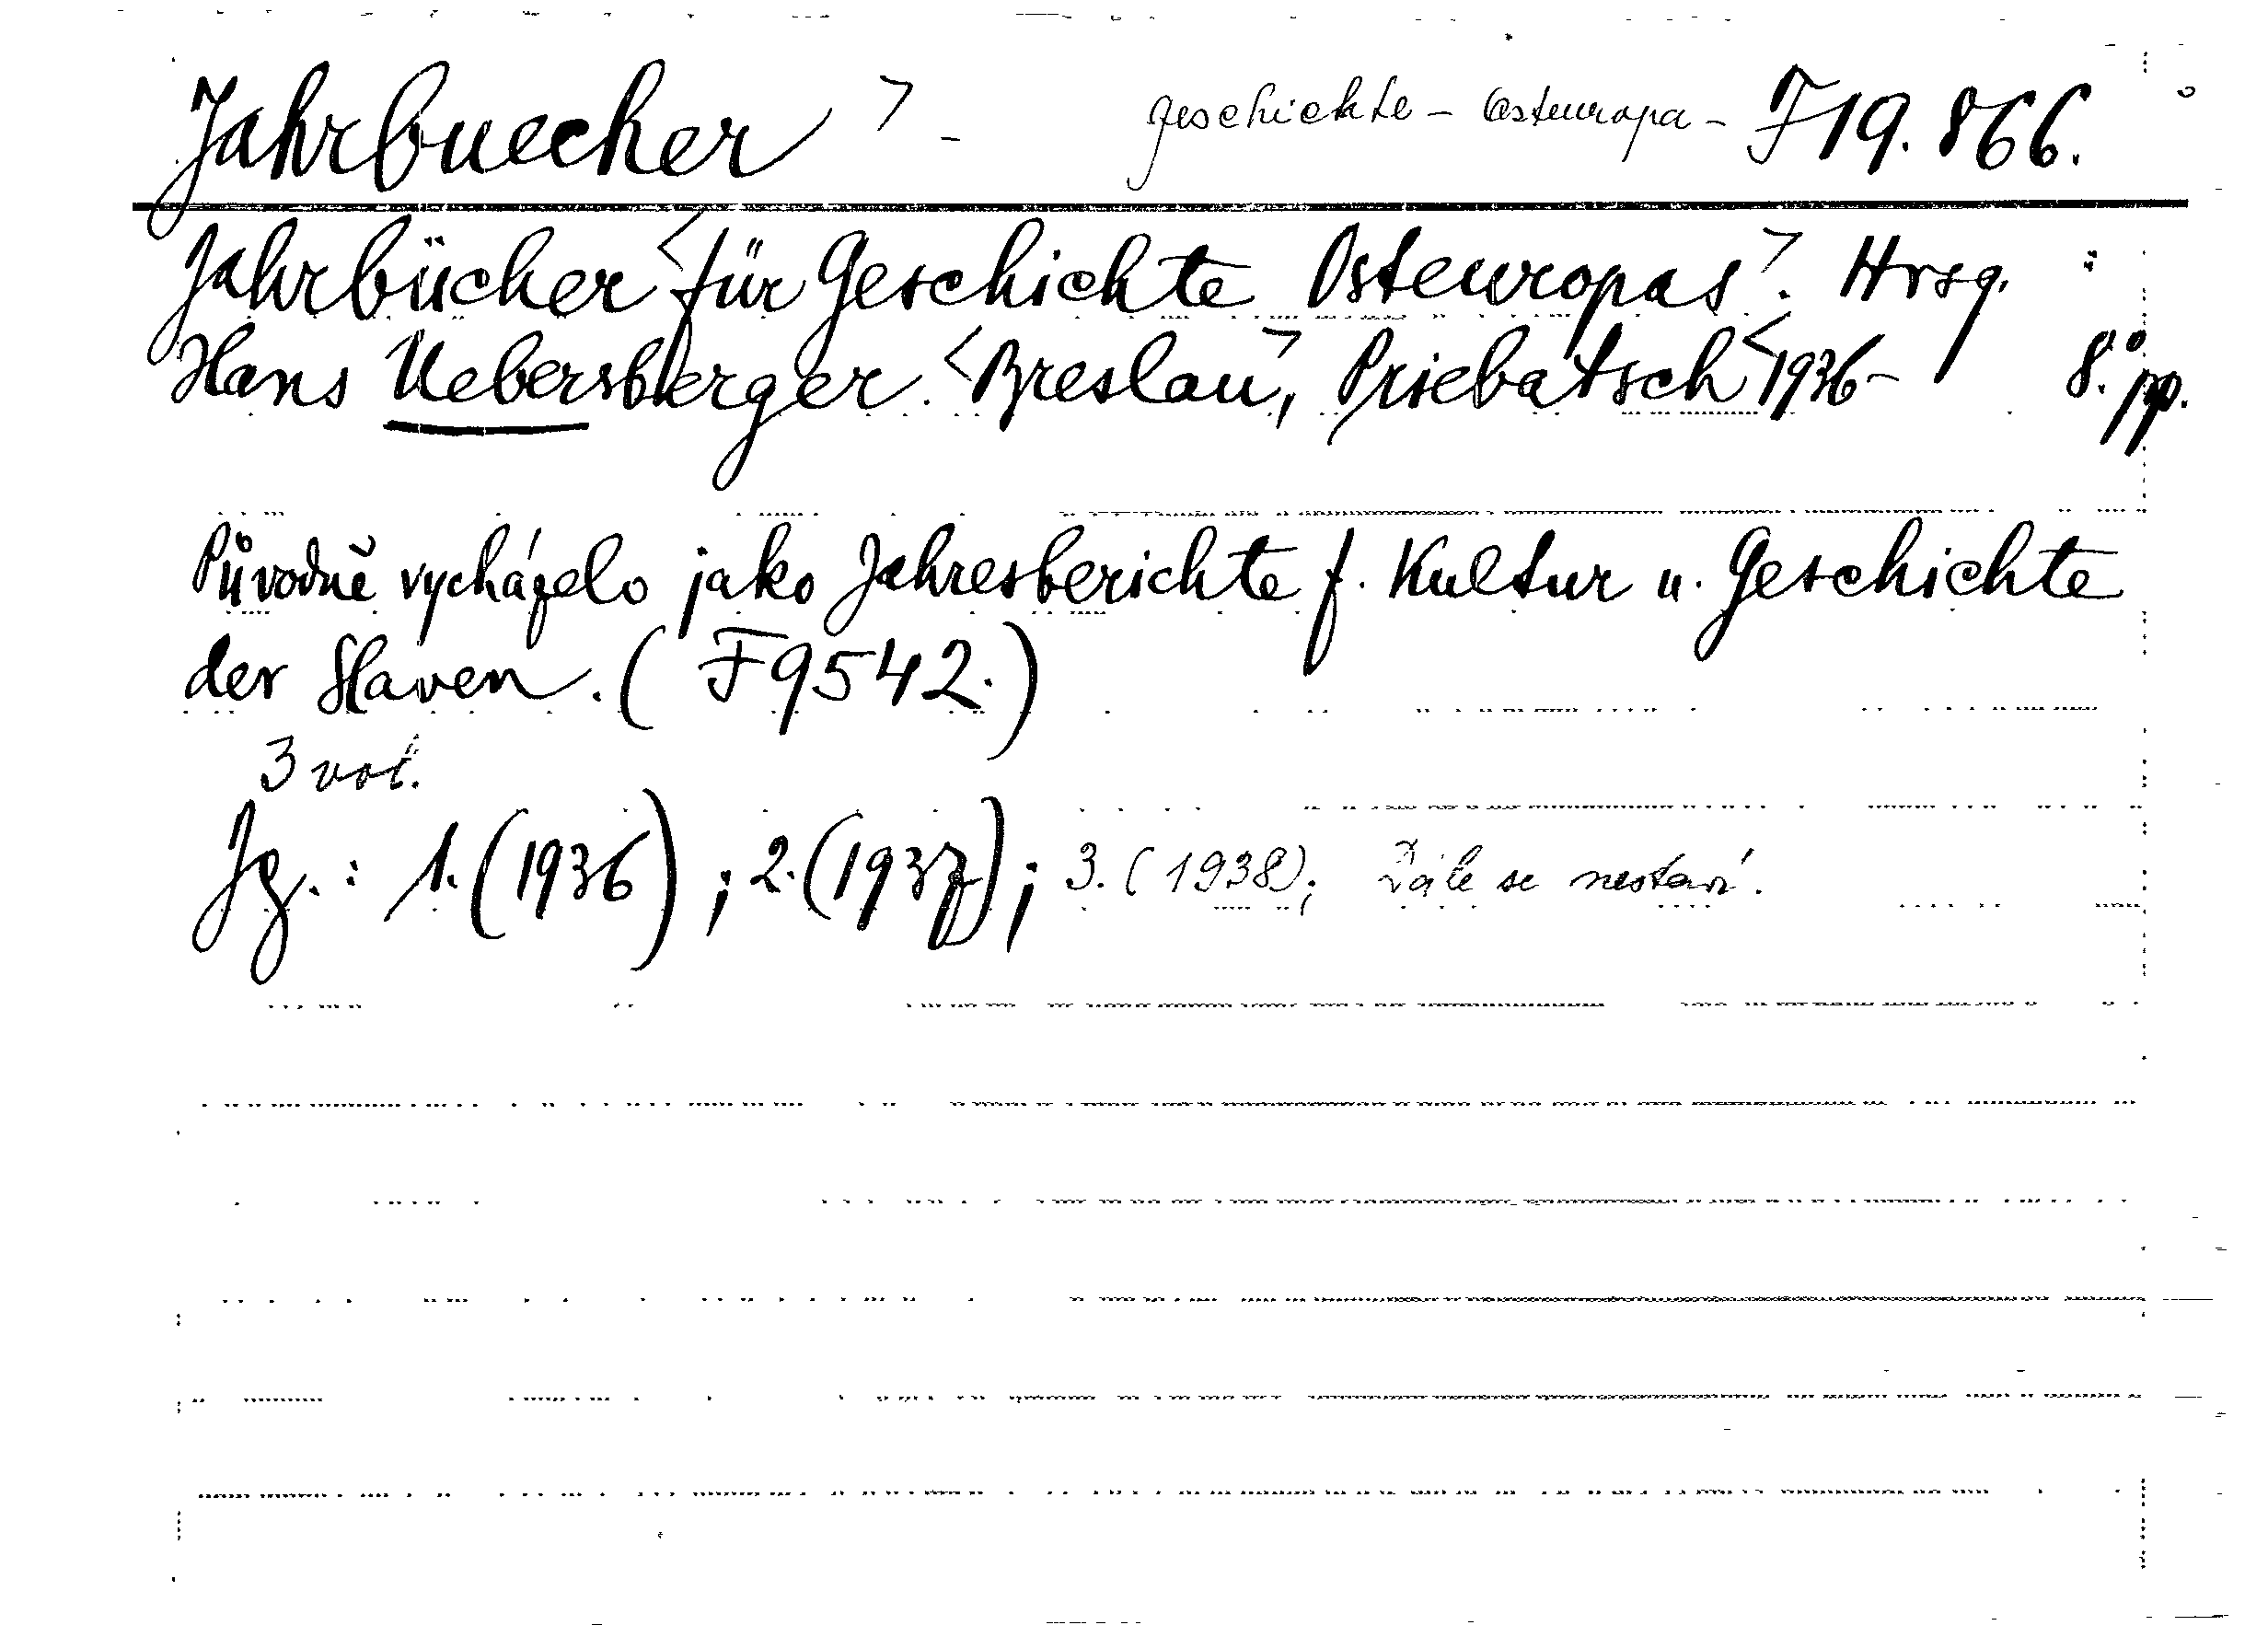 Jahrbuecher > - Geschichte - Osteuropa - F 19.866.
Jahrbücher <für Geschichte Osteuropas>. Hrsg. :
Hans Uebersberger. <Breslau>, Priebatsch <1936- 8.° pp.
Původně vycházelo jako Jahresberichte f. Kultur u. Geschichte
der Slaven. ( F 9542. )
3 vol.
Jg. : 1. (1936) ; 2. (1937) ; 3. (1938) ; Dále se nestaví.